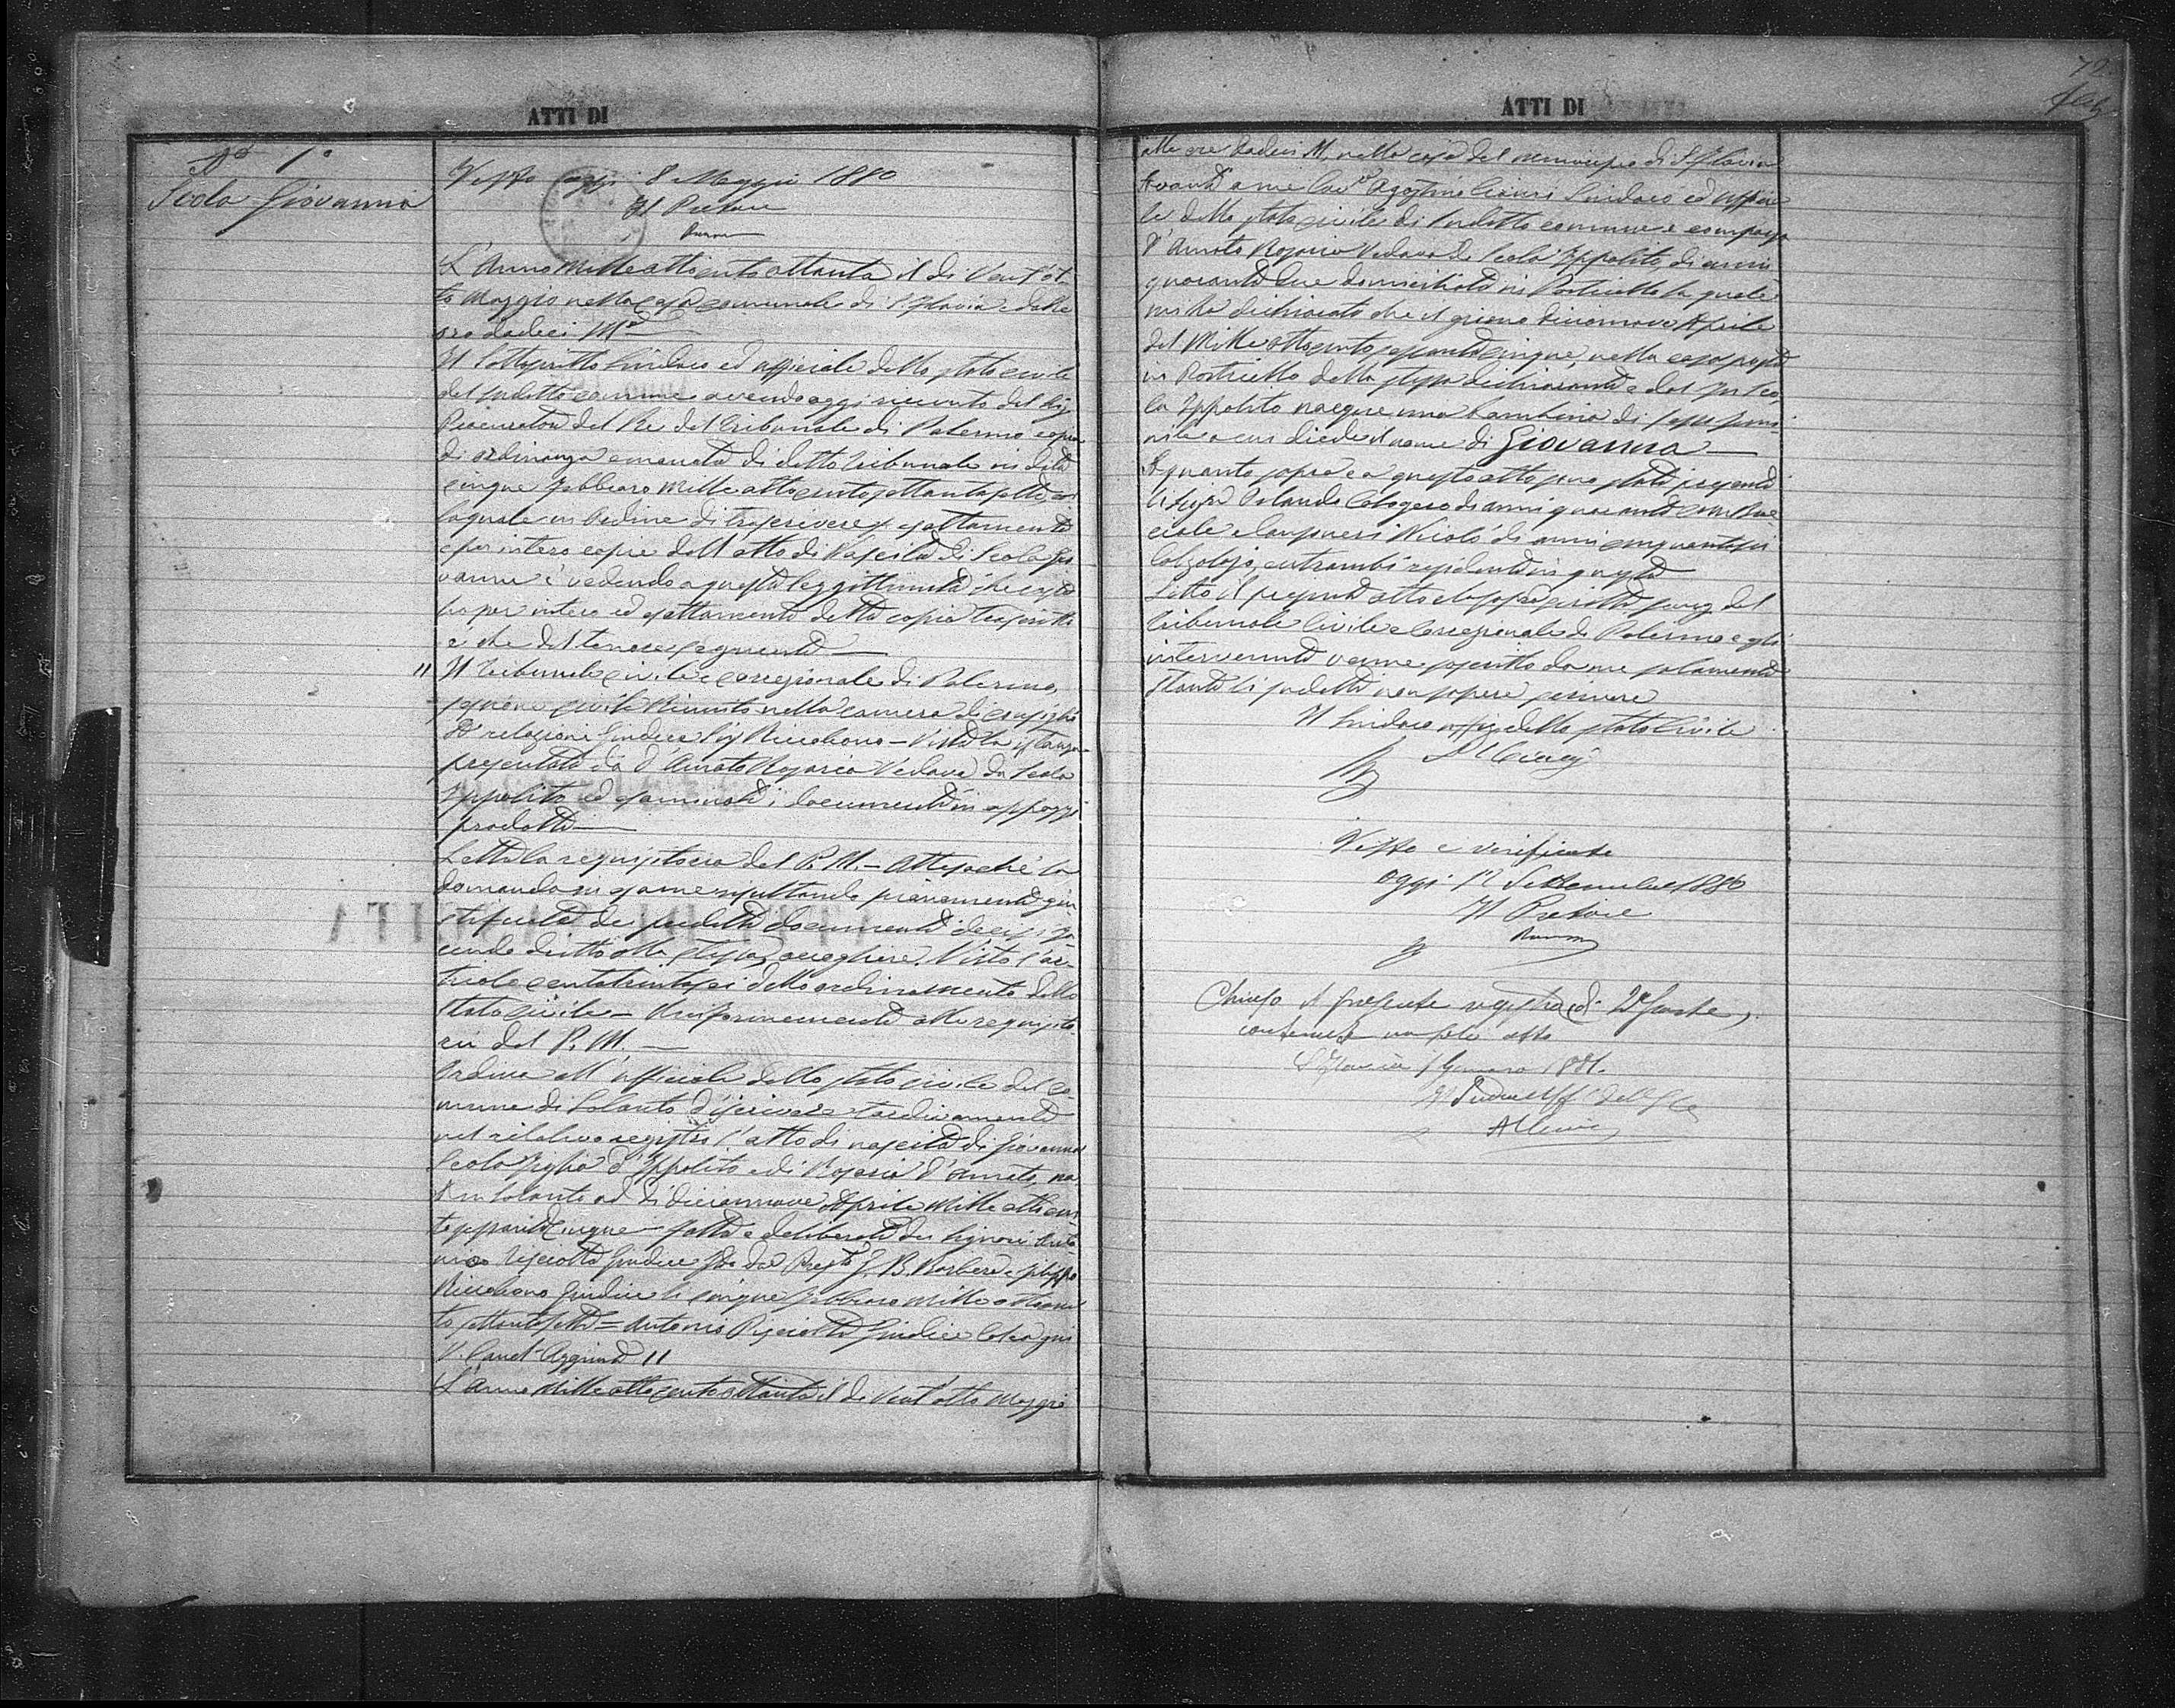 ATTI DI
No 1°
Scola Giovanna
Visto oggi 8 Maggio 1880
Il Pretore
L'Anno mille ottocento ottanta il dì Vent'ot-
to Maggio nella casa comunale di S. Flavia e dalle
ore dodici Md
Il Sottoscritto Sindaco ed officiale dello stato civile
del sudetto comune avendo oggi ricevuto dal Sig.
Procuratore del Re del Tribunale di Palermo copia
di ordinanza emanata di detto Tribunale in data
cinque Febbraro mille ottocento settantasette con
la quale si ordina di trascrivere esattamente
e per intero copia dell'atto di Nascita di Scola Gio-
vanna
ho per intero ed esattamente detta copia trascritta
e che è del tenore seguente
" Il Tribunale civile e correzionale di Palermo,
sezione civile Riunito nella camera di consiglio
relazione Giudice Sig. Riccobono - Vista la istanza
presentata da D'Amato Rosaria Vedova di Scola
Ippolito ed esaminati i documenti in appoggio
prodotti
Letta la requisitoria del P. M. - Attesochè la
domanda in esame risultando pienamente giu-
stificata dai predetti documenti
accogliere. Visto l'ar-
ticolo centotrentasei dello ordinamento dello
stato civile - Uniformemente alla requisito-
ria del P. M.
Ordina all'officiale dello stato civile del co-
mune di Solanto d'iscrivere tardivamente
nel relativo registro l'atto di nascita di Giovanna
Scola figlia d'Ippolito e di Rosaria D'Amato, na-
ta in Solanto ad dì diciannove Aprile mille ottocen-
to sessantacinque - fatta e deliberata dai Signori Anto-
nio Giudice G. B. Barbera e Filippo
Riccobono Giudice li cinque Febbraro mille ottocen-
to settantasette = Antonio Giudice
V. Canc. Aggiunto "
L'anno mille ottocento ottanta il dì Vent'otto Maggio
ATTI DI
alle ore dodici M. nella casa del municipio di S. Flavia
Avanti a me Cav. Agostino Sindaco ed officia-
le dello stato civile di sudetto comune è comparsa
D'Amato Rosaria Vedova di Scola Ippolito, di anni
quaranta due domiciliata in Porticello la quale
mi ha dichiarato che il giorno diciannove Aprile
del Mille ottocento sessantacinque, nella casa posta
in Porticello della stessa dichiarante e dal fu Sco-
la Ippolito nacque una bambina di sesso femmi-
nile a cui diede il nome di Giovanna
A quanto sopra e a questo atto sono stati presenti
Orlando Calogero di anni quaranta
Nicolò di anni cinquantasei
Calzolajo, entrambi residenti in questa
Letto il presente atto
Tribunale Civile e Correzionale di Palermo e gli
intervenuti venne sottoscritto da me solamente
stante li sudetti non sapere scrivere
Il Sindaco off. dello stato Civile
Visto e verificato
oggi 12 Settembre 1880
Il Pretore
Chiuso il presente registro di 2a parte
contenente un solo atto
S. Flavia 1 Gennaro 1881.